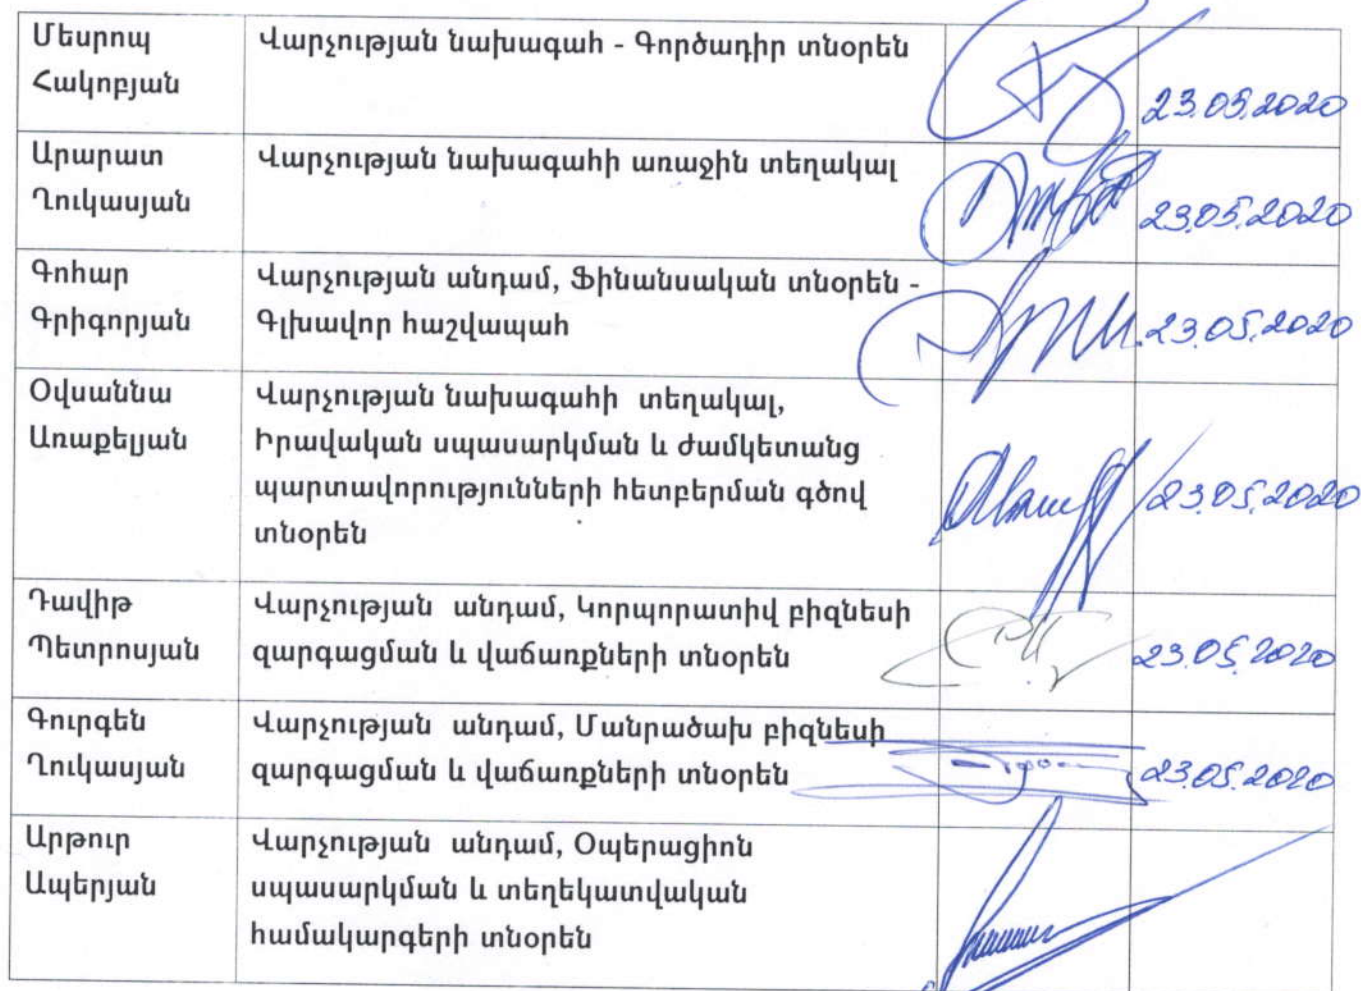 Մեսրոպ
Հակոբյան
Վարչության նախագահ - Գործադիր տնօրեն
23.05.2020
Արարատ
Ղուկասյան
Վարչության նախագահի առաջին տեղակալ
23.05.2020
Գոհար
Գրիգորյան
Վարչության անդամ, Ֆինանսական տնօրեն -
Գլխավոր հաշվապահ
23.05.2020
Օվսաննա
Առաքելյան
Վարչության նախագահի տեղակալ,
Իրավական սպասարկման և ժամկետանց
պարտավորությունների հետբերման գծով
տնօրեն
23.05.2020
Դավիթ
Պետրոսյան
Վարչության անդամ, Կորպորատիվ բիզնեսի
զարգացման և վաճառքների տնօրեն
23.05.2020
Գուրգեն
Ղուկասյան
Վարչության անդամ, Մանրածախ բիզնեսի
զարգացման և վաճառքների տնօրեն
23.05.2020
Արթուր
Ապերյան
Վարչության անդամ, Օպերացիոն
սպասարկման և տեղեկատվական
համակարգերի տնօրեն